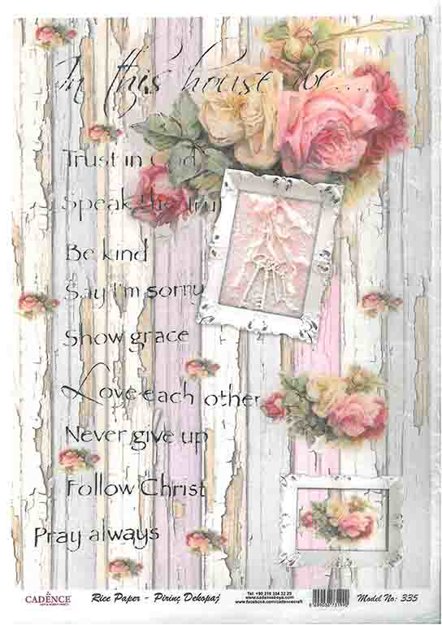 In this house we....
Trust in God
Speak the truth
Be kind
Say I'm sorry
Show grace
Love each other
Never give up
Follow Christ
Pray always
CADENCE
Rice Paper - Pirinç Dekopaj
www.cadenceboya.com
Model No: 335